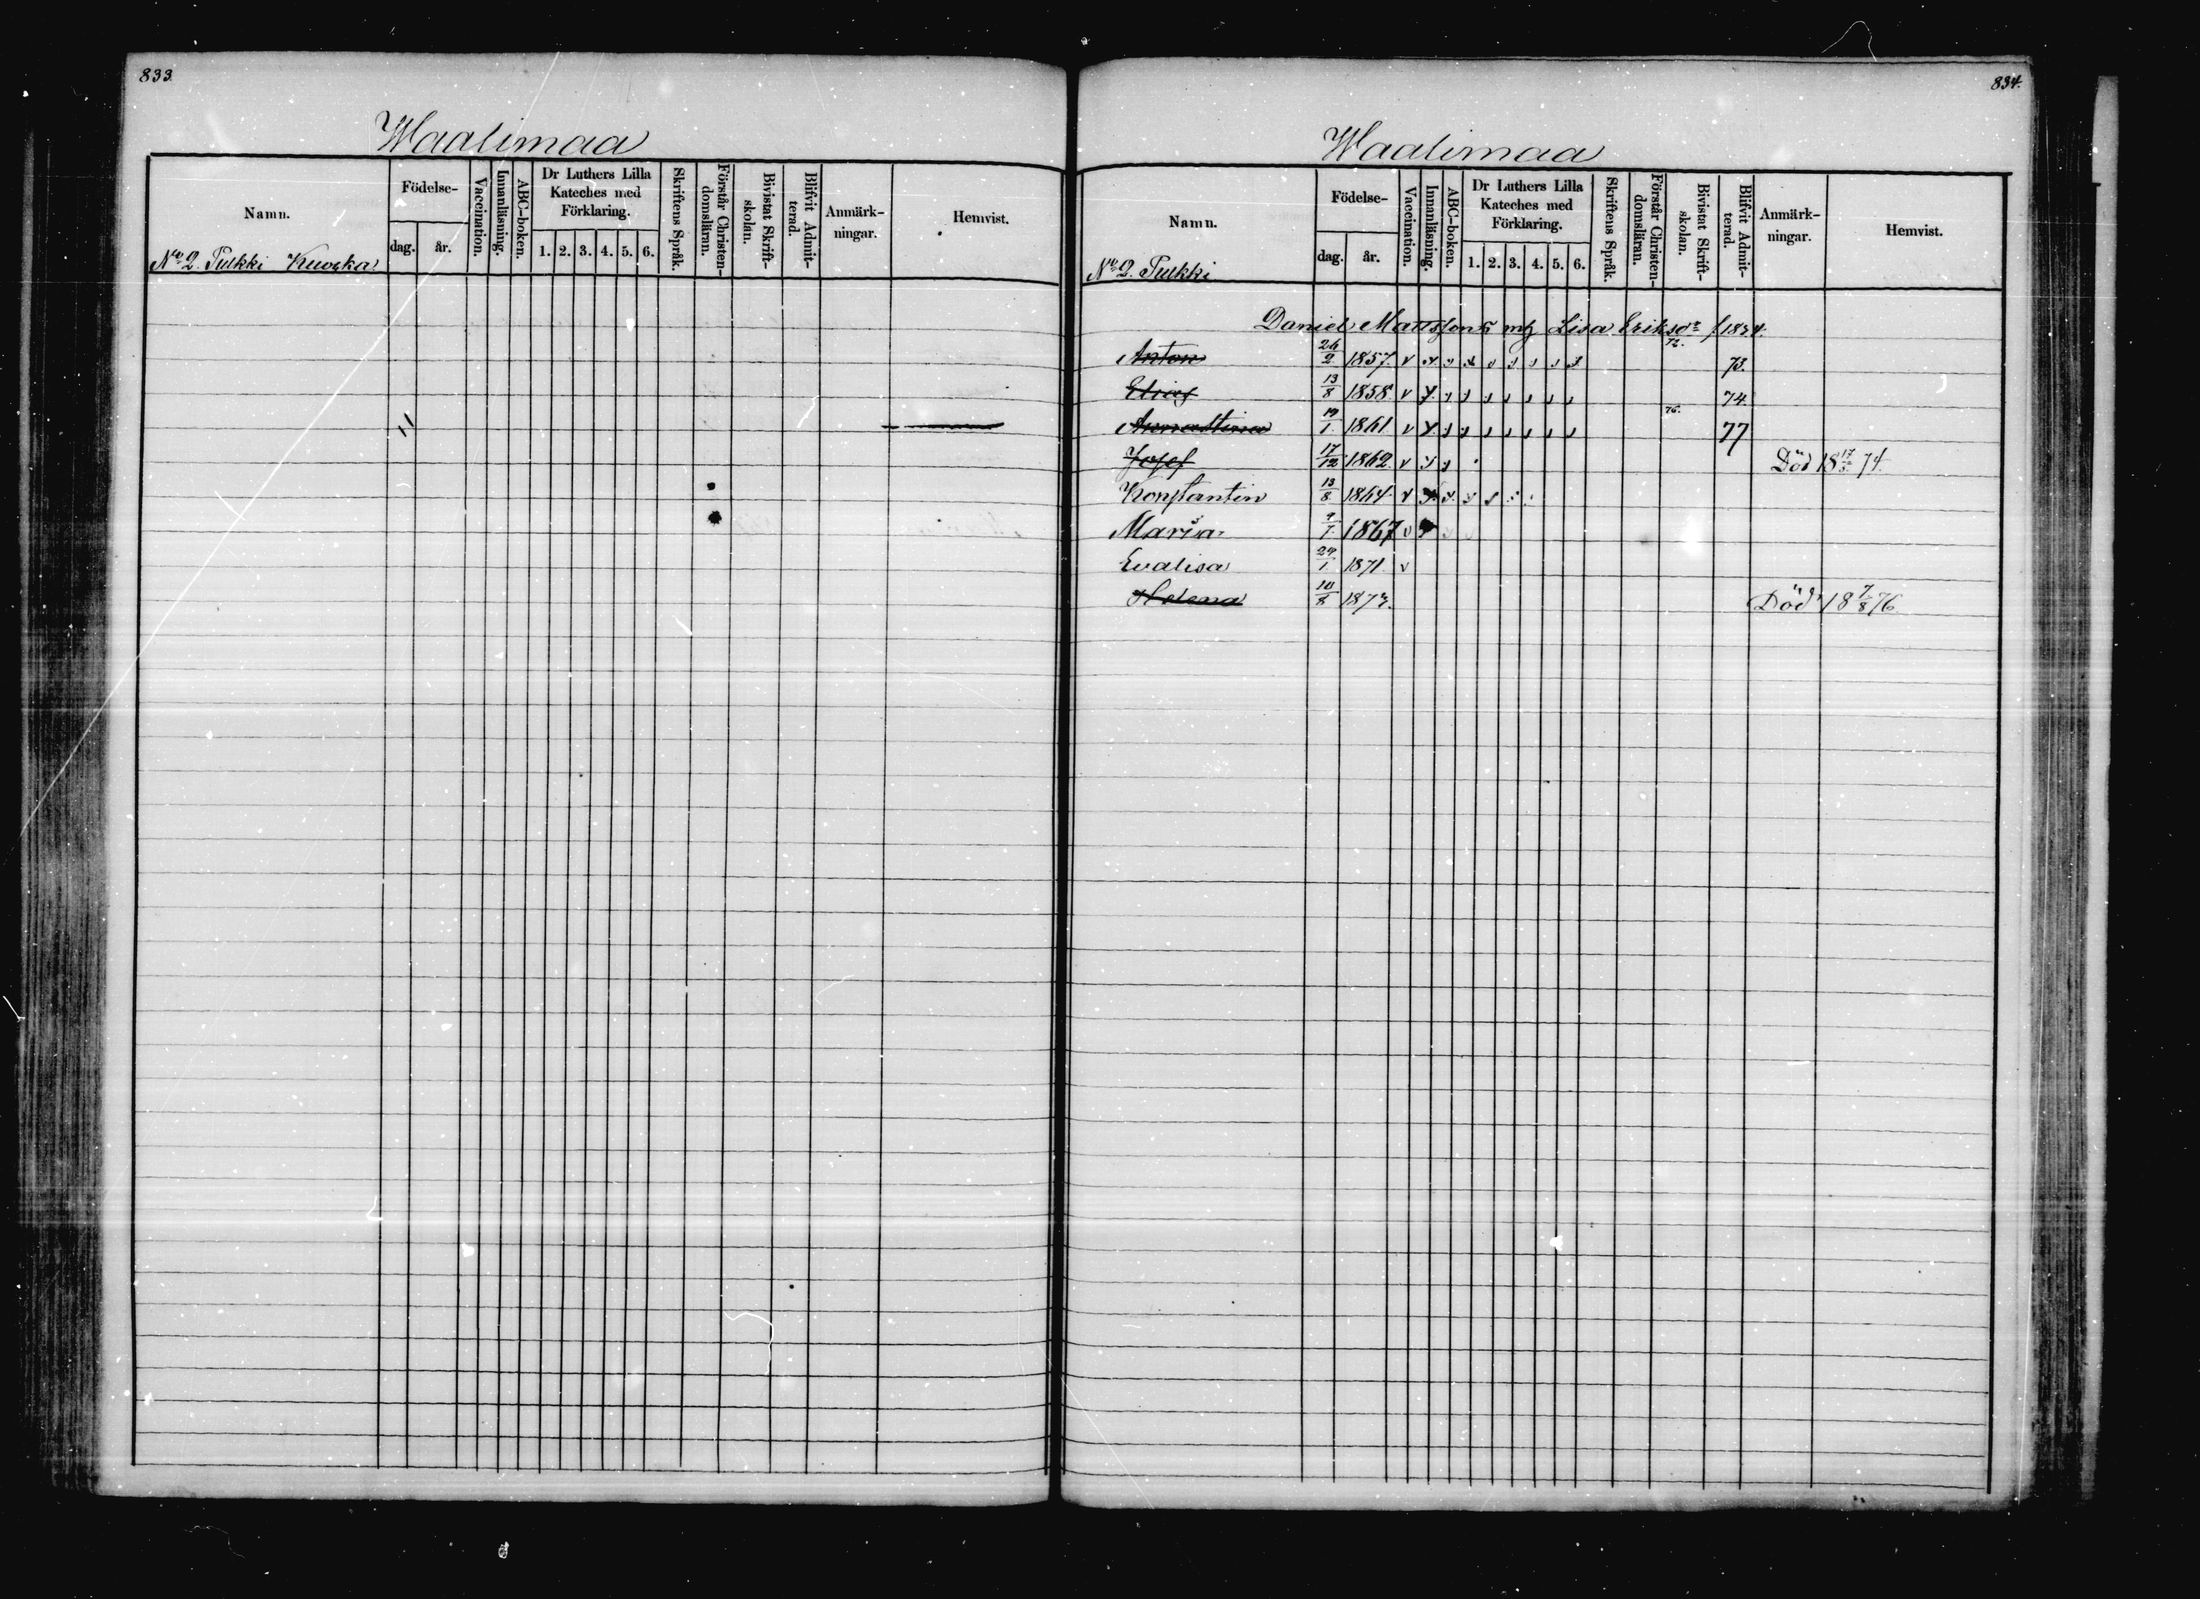 833.
Waalimaa
Namn.
Födelse-
dag. år.
Vaccination.
Innanläsning.
ABC-boken.
Dr Luthers Lilla
Kateches med
Förklaring.
1. 2. 3. 4. 5. 6.
Skriftens Språk.
Förstår Christen-
domsläran.
Bivistat Skrift-
skolan.
Blifvit Admit-
terad.
Anmärk-
ningar.
Hemvist.
No 2 Pulkki
834.
Waalimaa
Namn.
Födelse-
dag. år.
Vaccination.
Innanläsning.
ABC-boken.
Dr Luthers Lilla
Kateches med
Förklaring.
1. 2. 3. 4. 5. 6.
Skriftens Språk.
Förstår Christen-
domsläran.
Bivistat Skrift-
skolan.
Blifvit Admit-
terad.
Anmärk-
ningar.
Hemvist.
No 2. Pulkki
Daniel Mattsons Lisa Eriks
Anton 26/2 1857. 72. 73.
Elias 13/8 1858 74.
Annastina 19/1 1861 76. 77
Josef 17/12 1862 Död 18 17/3 74.
Konstantin 13/8 1864
Maria 1867
Evalisa 1871
Helena 187 Död 18 7/8 76